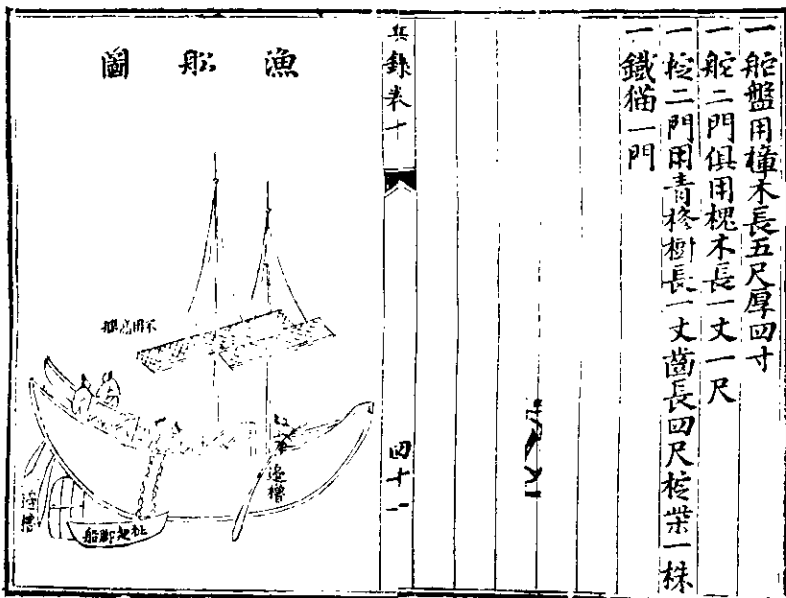 一舵盤用樟木長五尺厚四寸
一舵二門俱用槐木長一丈一尺
一椗二門用青柊樹長一丈齒長四尺椗柴一株
一鐵猫一門
兵錄卷十
四十一
漁船圖
邊櫓
邊櫓
脚船